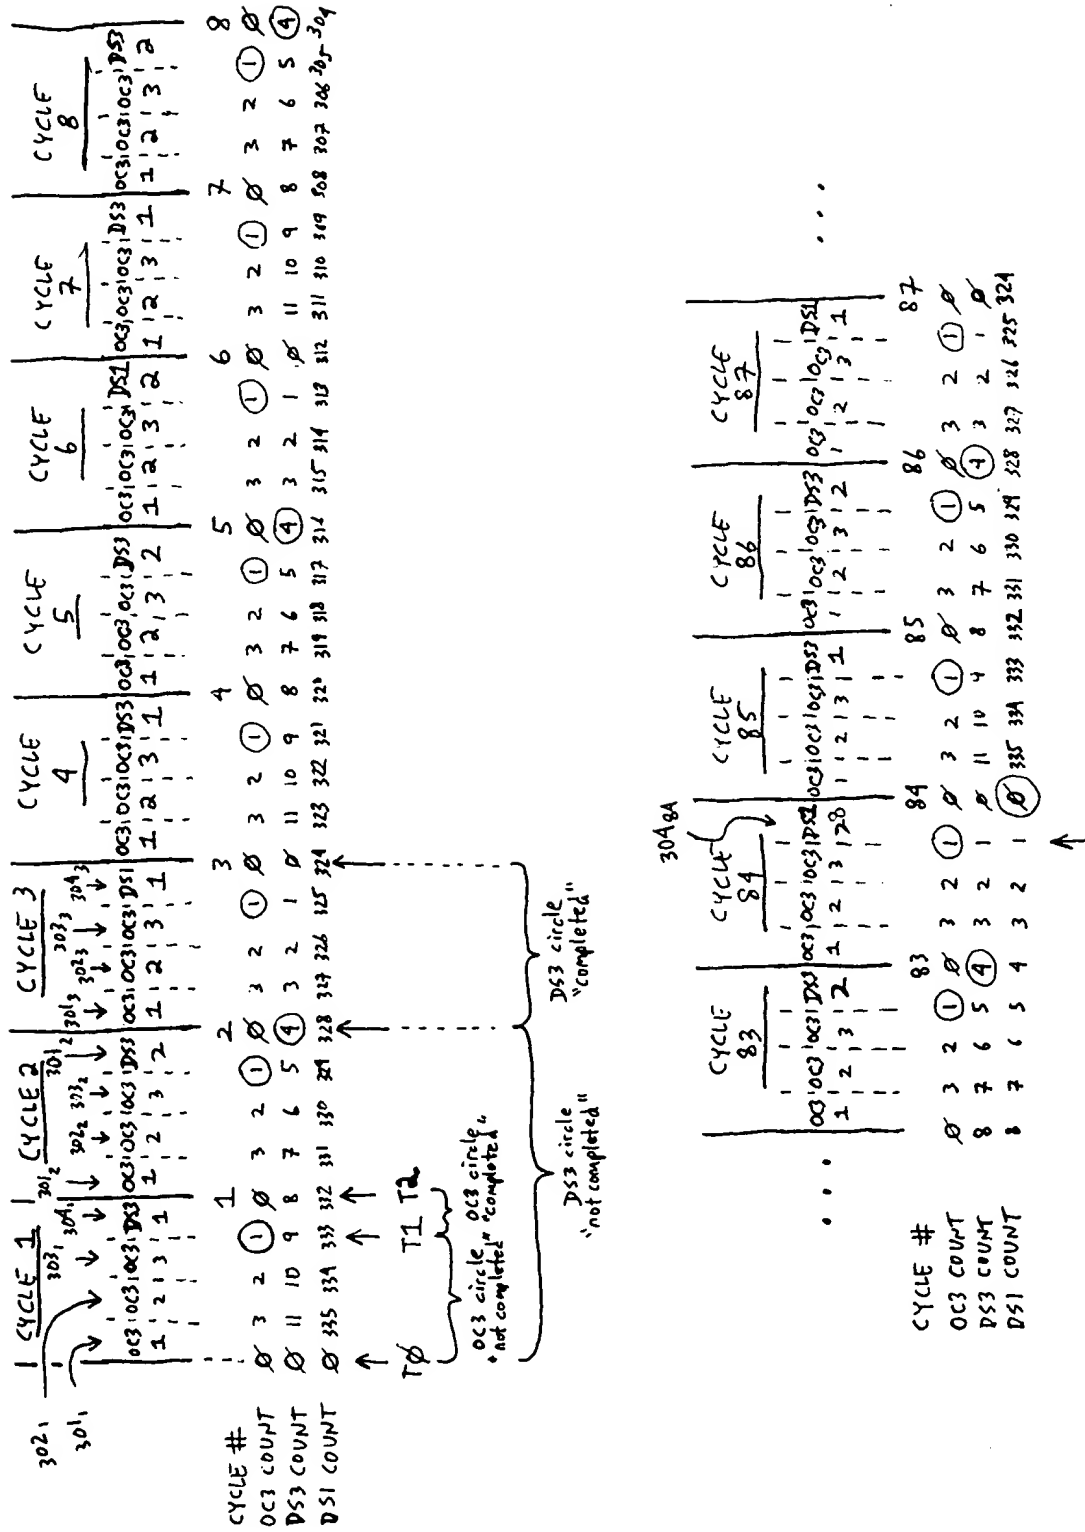 CYCLE 1 CYCLE 2 CYCLE 3 CYCLE 4 CYCLE 5 CYCLE 6 CYCLE 7 CYCLE 8
302₁ 301₁ 303₁ 304₁ 301₂ 302₂ 303₂ 301₂ 301₃ 302₃ 303₃ 304₃
OC3 OC3 OC3 DS3 OC3 OC3 OC3 DS3 OC3 OC3 OC3 DS1 OC3 OC3 OC3 DS3 OC3 OC3 OC3 DS3 OC3 OC3 OC3 DS1 OC3 OC3 OC3 DS3 OC3 OC3 OC3 DS3
1 2 3 1 1 2 3 2 1 2 3 1 1 2 3 1 1 2 3 2 1 2 3 2 1 2 3 1 1 2 3 2
CYCLE # 1 2 3 4 5 6 7 8
OC3 COUNT Ø 3 2 1 Ø 3 2 1 Ø 3 2 1 Ø 3 2 1 Ø 3 2 1 Ø 3 2 1 Ø 3 2 1 Ø 3 2 1 Ø
DS3 COUNT Ø 11 10 9 8 7 6 5 4 3 2 1 Ø 11 10 9 8 7 6 5 4 3 2 1 Ø 11 10 9 8 7 6 5 4
DS1 COUNT Ø 335 334 333 332 331 330 329 328 327 326 325 324 323 322 321 320 319 318 317 316 315 314 313 312 311 310 309 308 307 306 305 304
TØ T1 T2
OC3 circle "not completed"
OC3 circle "completed"
DS3 circle "not completed"
DS3 circle "completed"
304₈₄
... CYCLE 83 CYCLE 84 CYCLE 85 CYCLE 86 CYCLE 87 ...
OC3 OC3 OC3 DS3 OC3 OC3 OC3 DS1 OC3 OC3 OC3 DS3 OC3 OC3 OC3 DS3 OC3 OC3 OC3 DS1
1 2 3 2 1 2 3 28 1 2 3 1 1 2 3 2 1 2 3 1
CYCLE # 83 84 85 86 87
OC3 COUNT Ø 3 2 1 Ø 3 2 1 Ø 3 2 1 Ø 3 2 1 Ø 3 2 1 Ø
DS3 COUNT 8 7 6 5 4 3 2 1 Ø 11 10 9 8 7 6 5 4 3 2 1 Ø
DS1 COUNT 8 7 6 5 4 3 2 1 Ø 335 334 333 332 331 330 329 328 327 326 325 324